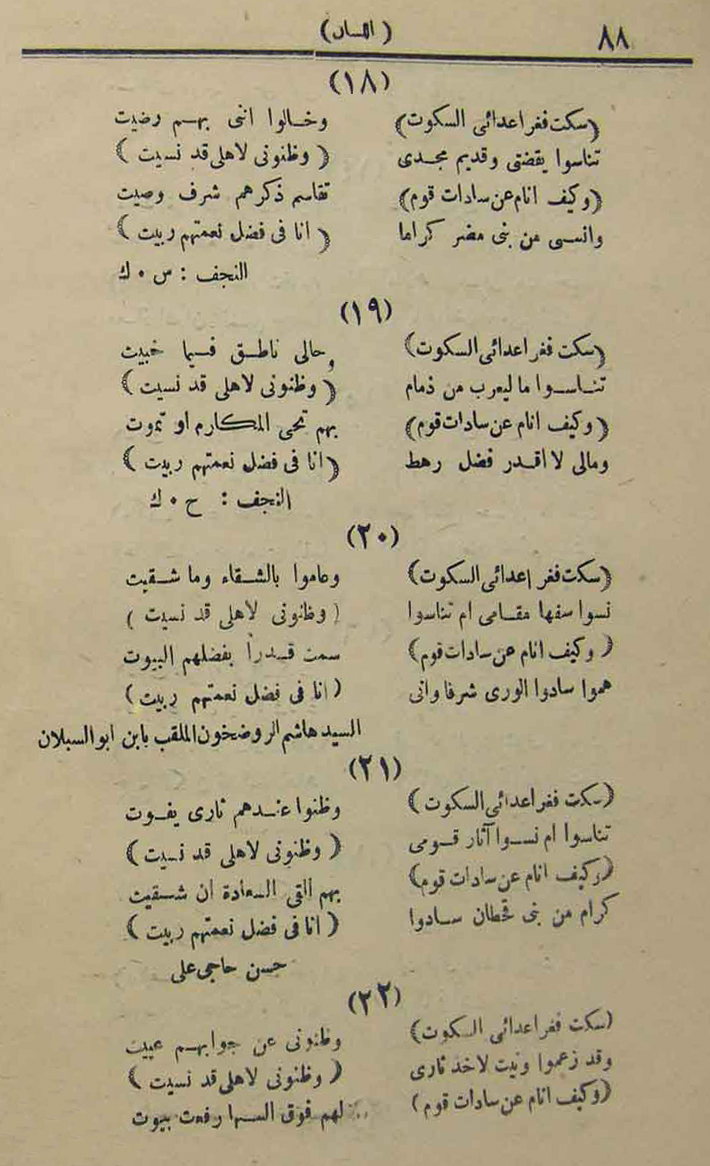 ٨٨ (اللسان)
(١٨)
(سكت فغر اعدائى السكوت) وخالوا اننى بهم رضيت
تناسوا يقضتى وقديم مجدى (وظنونى لاهلى قد نسيت)
(وكيف انام عن سادات قوم) تقاسم ذكرهم شرف وصيت
وانسى من بنى مضر كراما (انا فى فضل نعمتهم ربيت)
النجف : س ٠ ك
(١٩)
(سكت فغر اعدائى السكوت) وحالى ناطق فيما خبيت
تناسوا ما ليعرب من ذمام (وظنونى لاهلى قد نسيت)
(وكيف انام عن سادات قوم) بهم تحى المكارم او تموت
ومالى لا اقدر فضل رهط (انا فى فضل نعمتهم ربيت)
النجف : ح ٠ ك
(٢٠)
(سكت فغر اعدائى السكوت) وعاموا بالشقاء وما شقيت
نسوا سفها مقامى ام تناسوا (وظنونى لاهلى قد نسيت)
(وكيف انام عن سادات قوم) سمت قدراً بفضلهم البيوت
هموا سادوا الورى شرفا وانى (انا فى فضل نعمتهم ربيت)
السيد هاشم الروضخون الملقب بابن ابو السبلان
(٢١)
(سكت فغر اعدائى السكوت) وظنوا عندهم ثارى يفوت
تناسوا ام نسوا آثار قومى (وظنونى لاهلى قد نسيت)
(وكيف انام عن سادات قوم) بهم القى السعادة ان شقيت
كرام من بنى قحطان سادوا (انا فى فضل نعمتهم ربيت)
حسن حاجى على
(٢٢)
(سكت فغر اعدائى السكوت) وظنونى عن جوابهم عييت
وقد زعموا ونيت لاخذ ثارى (وظنونى لاهلى قد نسيت)
(وكيف انام عن سادات قوم) لهم فوق السها رفعت بيوت